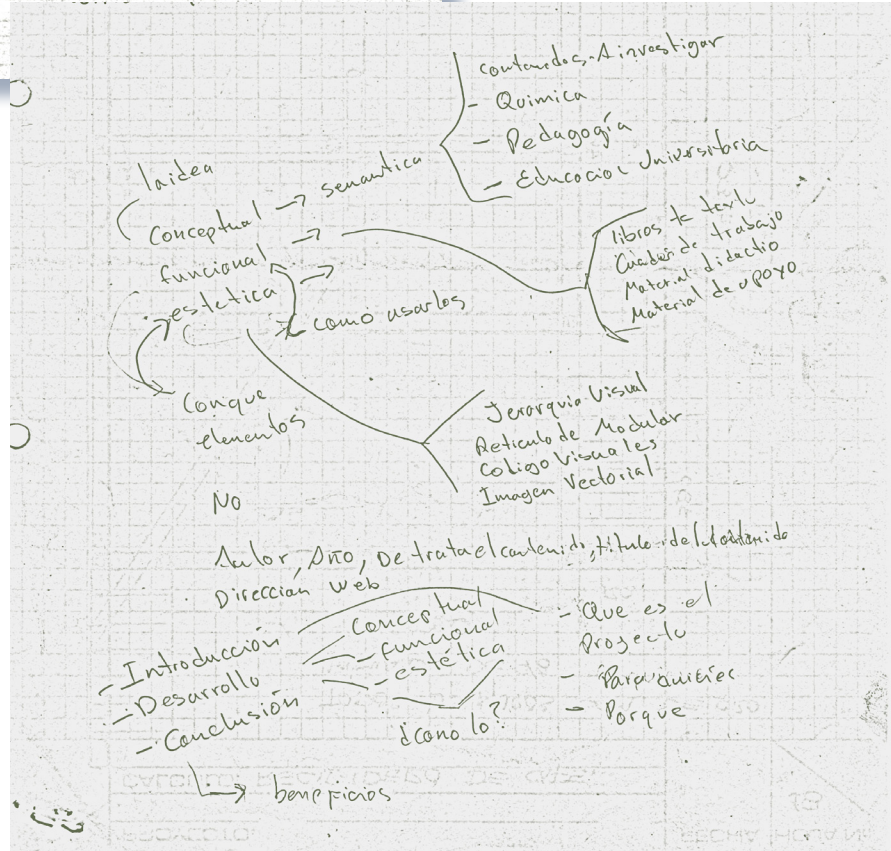 contenidos-A investigar
- Quimica
- Pedagogía
- Educacion Universitaria
la idea
Conceptual → semantica
funcional →
estetica →
como usarlos
libros de texto
Cuader de trabajo
Material didactio
Material de apoyo
Conque
elementos
Jerarquia Visual
Reticula de Modular
Codigo Visuales
Imagen Vectorial
No
Autor, Año, De trata el contenido, titulo del contenido
Dirección web
- Introducción
- Desarrollo
- Conclusión
Conceptual
- funcional
- estética
¿cono lo?
- Que es el
Proyecto
- Para quienes
- Porque
→ beneficios
CALCULO
PROYECTO
FECHA HOJA Nº